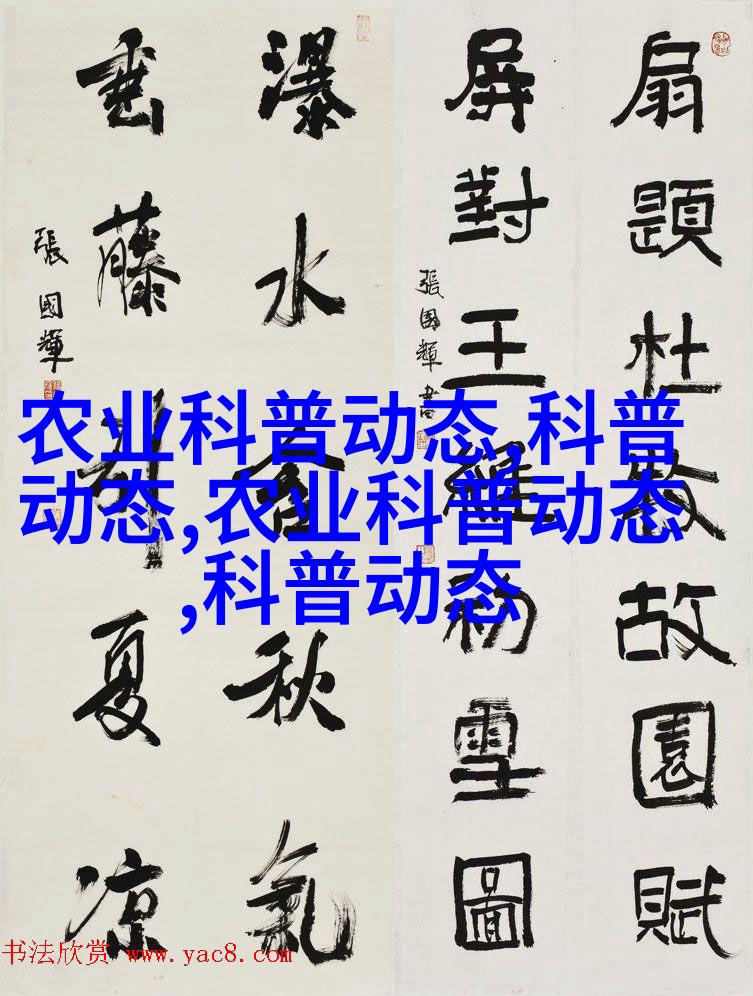 扇題杜牧故園賦
屏對王維初雪圖
張國輝書
瀑水含秋氣
垂藤引夏凉
張國輝
农业科普动态,科普
动态,农业科普动态
,科普动态
书法欣赏 www.yac8.com